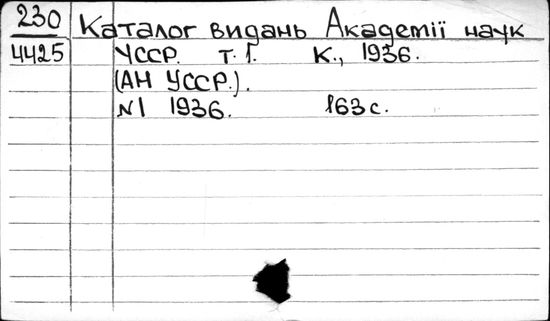 230 Каталог видань Академії наук
4425 УССР. т. I. К., 1936.
(АН УССР.).
№1 1936. 163 с.